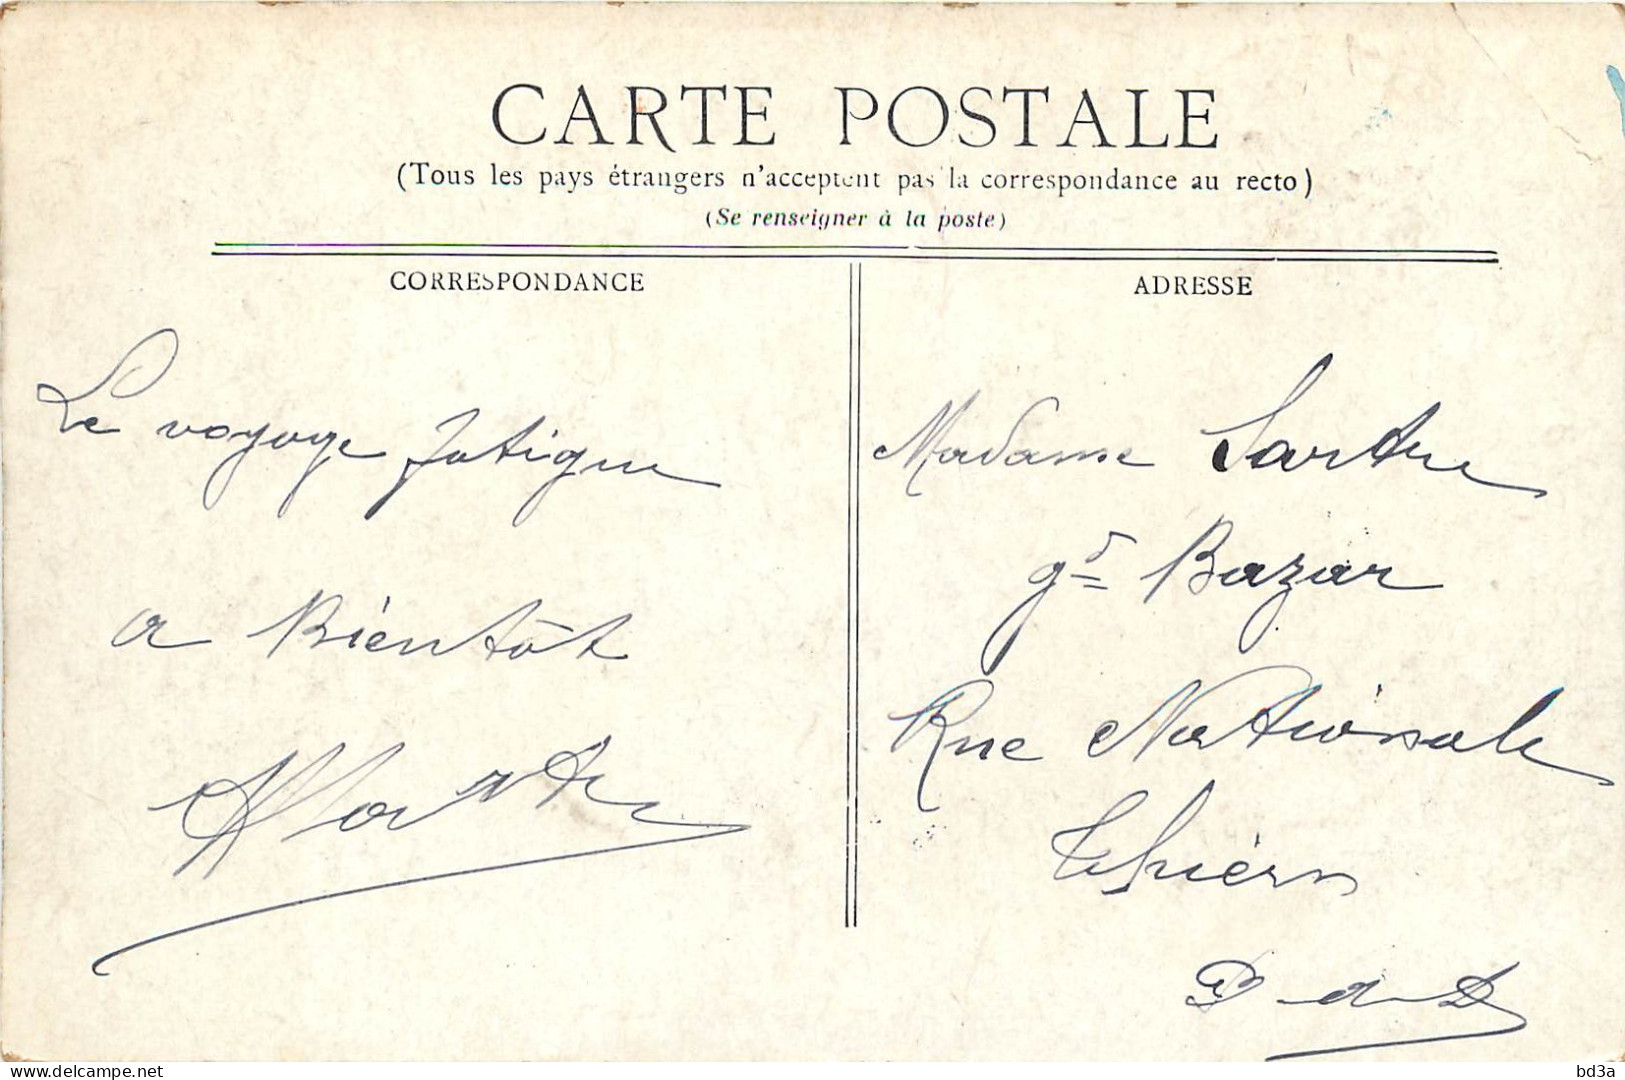 CARTE POSTALE
(Tous les pays étrangers n'acceptent pas la correspondance au recto)
(Se renseigner à la poste)
CORRESPONDANCE
Le voyage fatigue
a Bientôt
ADRESSE
Madame Sartre
gd Bazar
Rue Nationale
Thiers
P de D
www.delcampe.net
bd3a